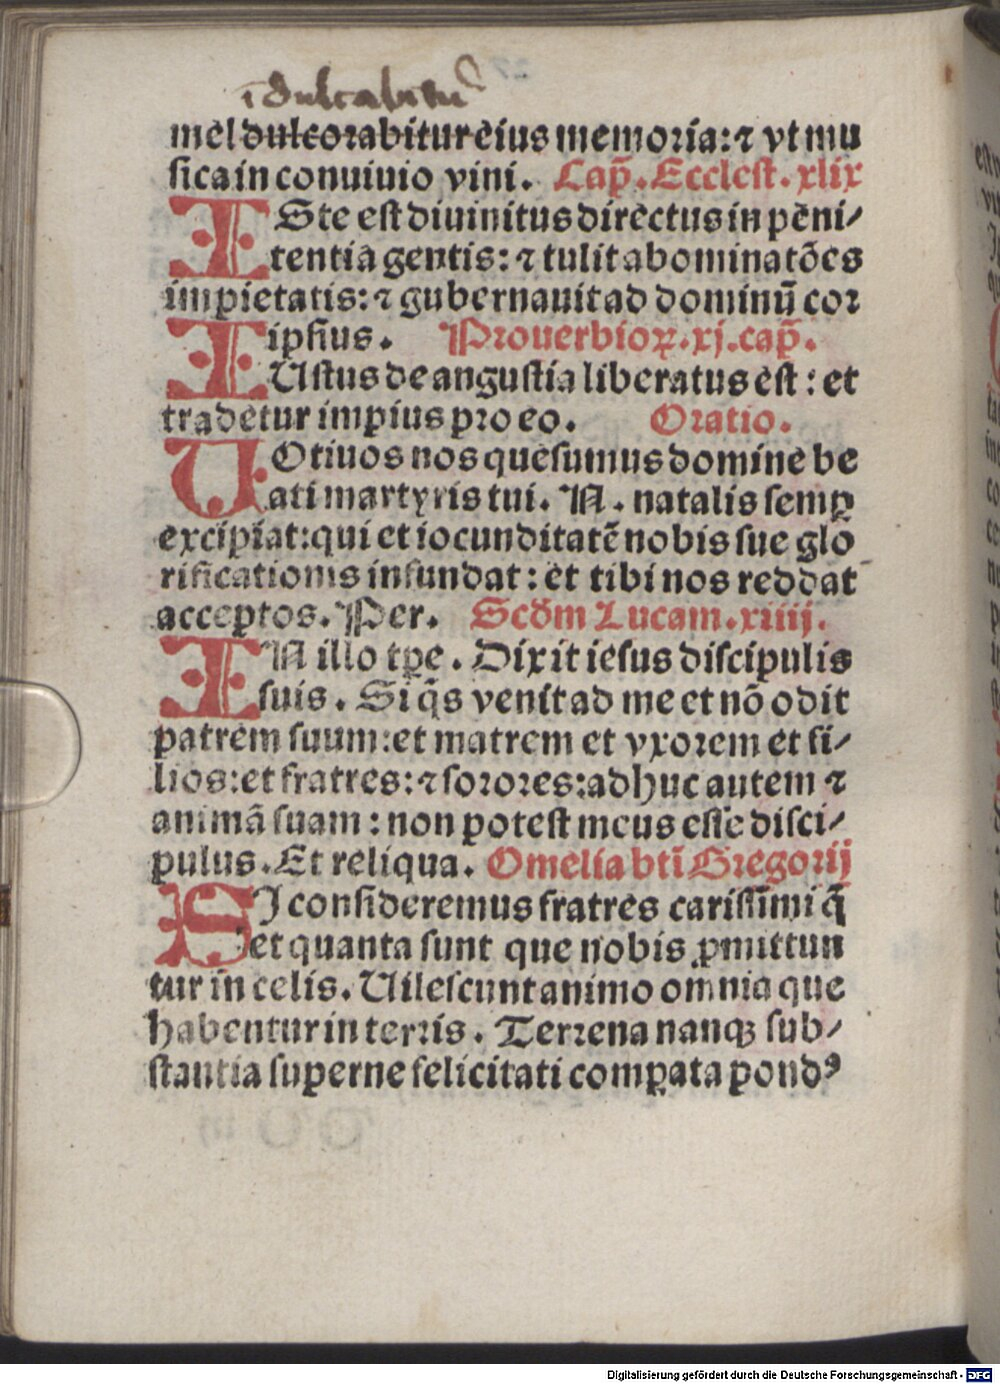 indulcabitur
mel dulcorabitur eius memoria: ⁊ vt mu
sica in conuiuio vini. Cap̃. Ecclesi. xlix
ISte est diuinitus directus in peni⸗
tentiã gentis: ⁊ tulit abominatões
impietatis: ⁊ gubernauit ad dominũ cor
ipsius. Prouerbioꝝ. xj. cap̃.
IUstus de angustia liberatus est: et
tradetur impius pro eo. Oratio.
UOtiuos nos quesumus domine be
ati martyris tui. N. natalis semꝑ
excipiat: qui et iocunditatẽ nobis sue glo
rificationis infundat: et tibi nos reddat
acceptos. Per. Scd̃m Lucam. xiiij.
IN illo tꝑe. Dixit iesus discipulis
suis. Si q̃s venit ad me et nõ odit
patrem suum: et matrem et vxorem et fi⸗
lios: et fratres: ⁊ sorores: adhuc autem ⁊
animã suam: non potest meus esse disci⸗
pulus. Et reliqua. Omelia bti̅ Gregorij
SJ consideremus fratres carissimi q̃
et quanta sunt que nobis ꝓmittun
tur in celis. Uilescunt animo omnia que
habentur in terris. Terrena nanqꝫ sub⸗
stantia superne felicitati comꝑata pondꝰ
Digitalisierung gefördert durch die Deutsche Forschungsgemeinschaft - DFG